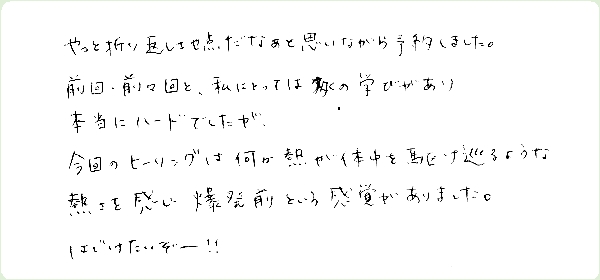 やっと折り返し地点だなぁと思いながら予約しました。
前回・前々回と、私にとっては数々の学びがあり
本当にハードでしたが、
今回のヒーリングは何か熱が体中を駆け巡るような
熱さを感じ 爆発前という感覚がありました。
はじけたいぞー!!